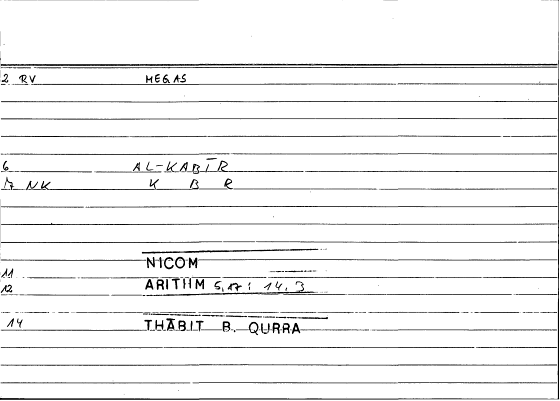 2 RV MEGAS
6 AL-KABĪR
7 NK K B R
NICOM
11
12 ARITHM 5,17 : 14,3
14 THĀBIT B. QURRA